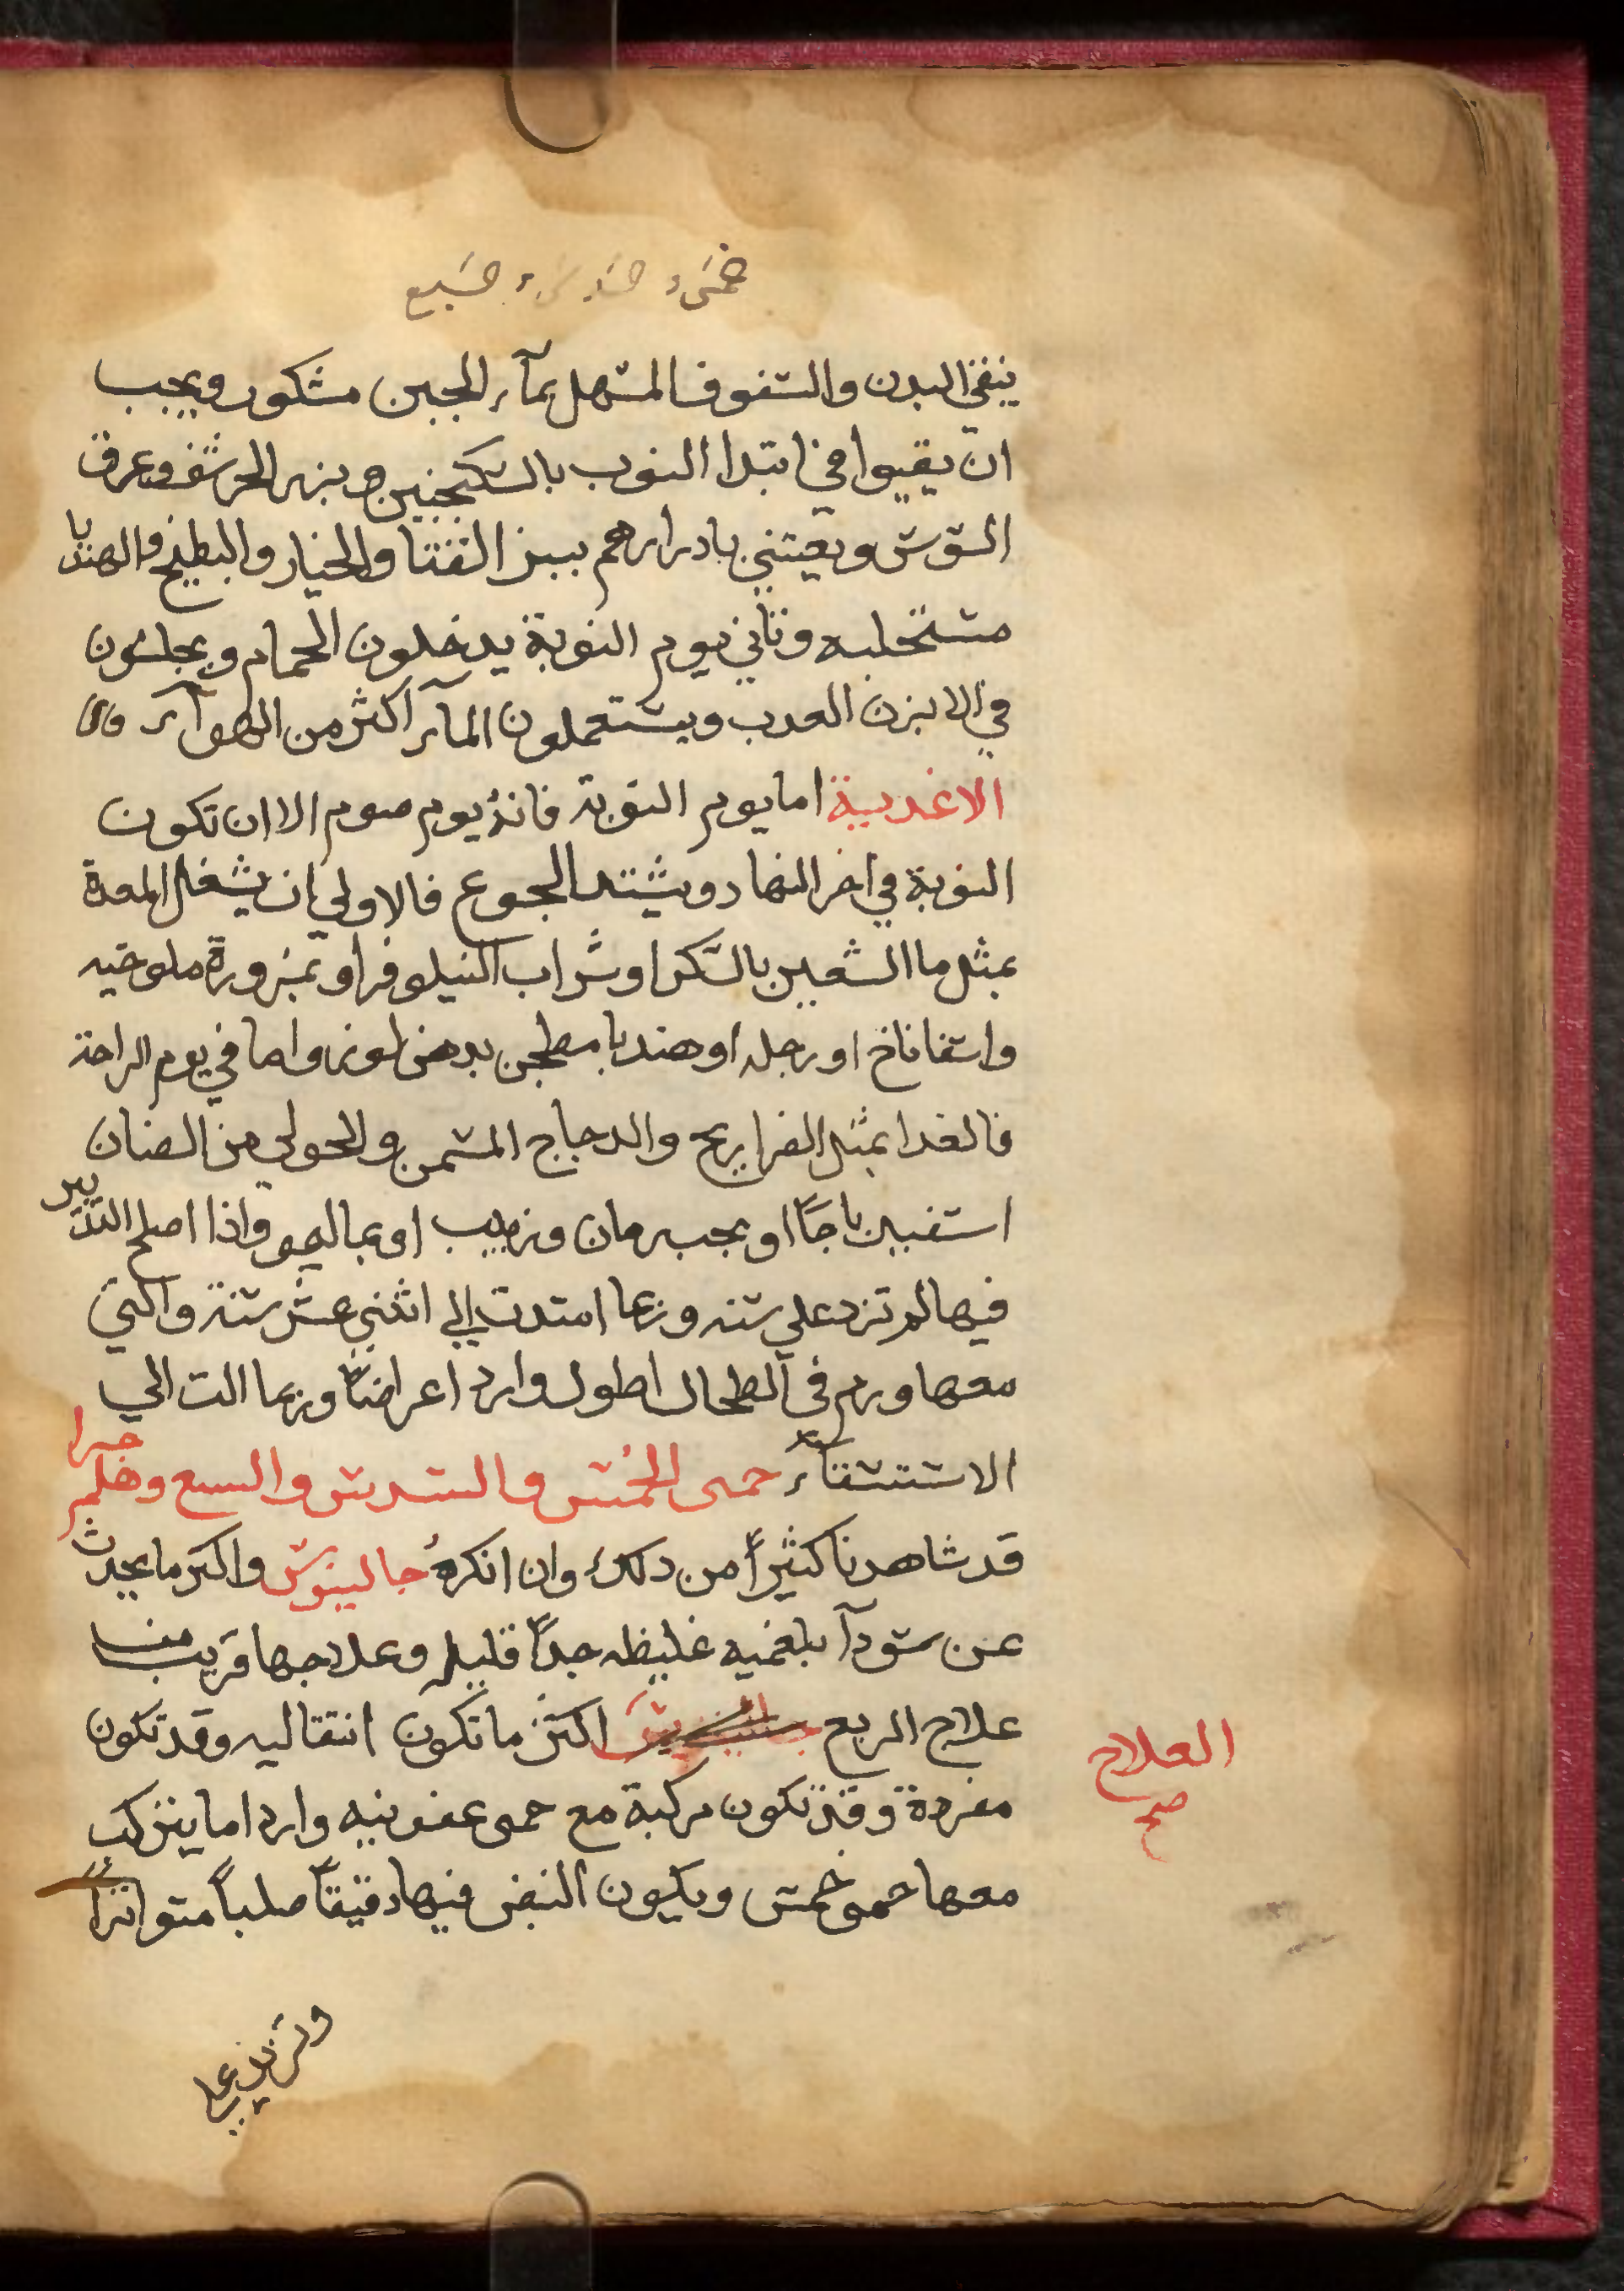 خمس، سدس، سبع
ينقي البدن والسفوف المسهل بمآء الجبن مشكور ويجب
ان يقيوا في ابتدا النوب بالسكنجبين وبزر الحرشف وعرق
السوس ويعتني بادرارهم ببزر القثا والخيار والبطيخ والهندبا
مستحلبه وثاني يوم النوبة يدخلون الحمام ويجلسون
في الابزن العدب ويستعملون المآء اكثر من الهوآء
الاغدية اما يوم النوبة فانه يوم صوم الا ان تكون
النوبة في اخر النهار ويشتد الجوع فالاولي ان يشغل المعدة
بمثل ما الشعير بالسكر او شراب النيلوفر او بمزورة ملوخيه
واسفاناخ او رجله او هندبا مطجن بدهن لوز واما في يوم الراحة
فالغدا بمثل الفراريج والدجاج المسمن والحولي من الضان
اسفيدباجًا او بحب رمان وزبيب او بماليمو واذا اصلح التدبير
فيها لم تزد علي سنه وربما امتدت الي اثني عشر سنة والتي
معها ورم في الطحال اطول وارد اعراضًا وربما الت الي
الاستسقآء حمى الخمس والسدس والسبع وهلم جرا
قد شاهدنا كثيرًا من دلك وان انكره جالينوس واكثر ما يحدث
عن سودآ بلغميه غليظه جدًا قليله وعلاجها قريب من
علاج الربع اكثر ما تكون انتقاليه وقد تكون
مفردة وقد تكون مركبة مع حمى عفونيه وارد اما يتركب
معها حمى خمس ويكون النبض فيها دقيقًا صلبًا متواترًا
العلاج
صح